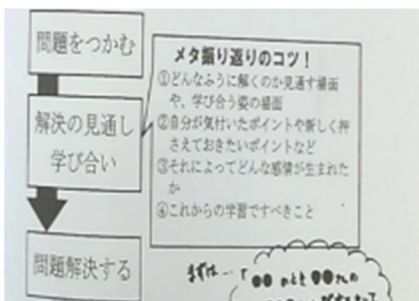 問題をつかむ
解決の見通し
学び合い
問題解決する
メタ振り返りのコツ！
①どんなふうに解くのか見通す場面
や、学び合う姿の場面
②自分が気付いたポイントや新しく押
さえておきたいポイントなど
③それによってどんな感情が生まれた
か
④これからの学習ですべきこと
まずは…「